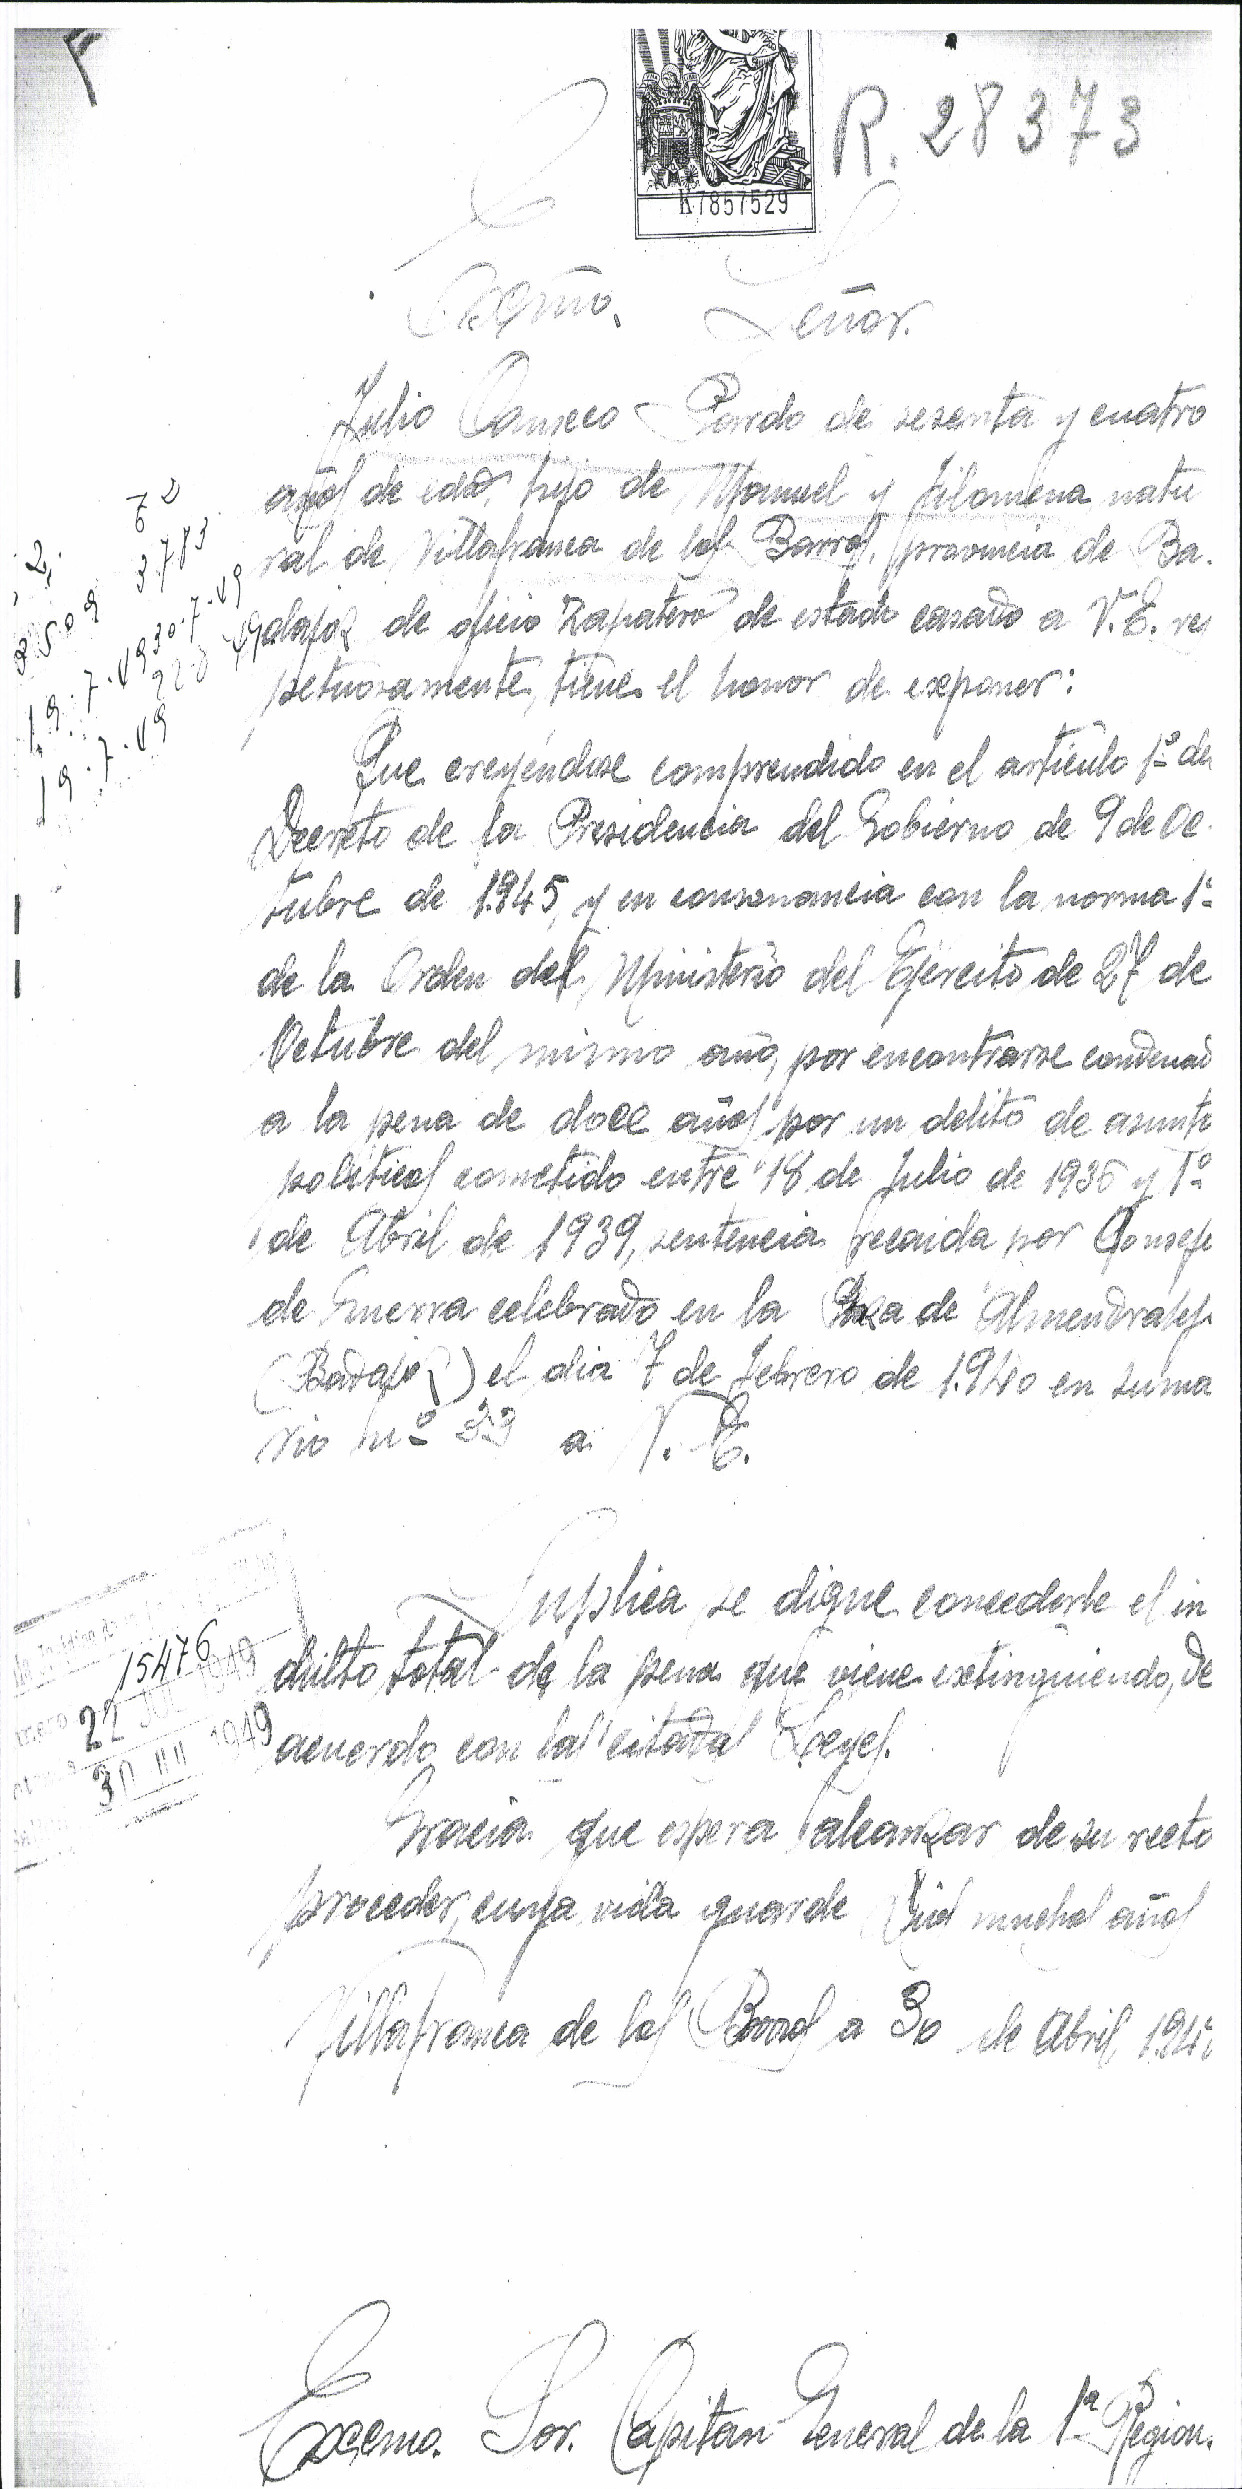 R. 28373
K7857529
Excmo. Señor.
Julio Pardo de sesenta y cuatro
años de edad, hijo de Manuel y Filomena natu
ral de Villafranca de los Barros, provincia de Ba.
dajoz de oficio Zapatero de estado casado a V.E. res
petuosamente, tiene el honor de exponer:
Que creyéndose comprendido en el artículo 1º del
Decreto de la Presidencia del Gobierno de 9 de Oc
tubre de 1.945, y en consonancia con la norma 1ª
de la Orden del Ministerio del Ejército de 27 de
Octubre del mismo año, por encontrarse condenad
a la pena de doce años por un delito de asunto
políticos cometido entre 18 de Julio de 1936 y 1º
de Abril de 1939, sentencia recaida por Consejo
de Guerra celebrado en la de Almendralejo
(Badajoz) el dia 7 de Febrero de 1.940 en suma
rio nº 33 a V. E.
Suplica se digne concederle el in
dulto total de la pena que viene extinguiendo, de
acuerdo con las citadas Leyes.
Gracia que espera alcanzar de su recto
proceder, cuya vida guarde Dios muchos años
Villafranca de los Barros a 30 de Abril
Excmo. Sor. Capitan General de la 1ª Region.
62
3.783
30.7.49
2,
3509
19.7.49
19.7.49
15476
22 JUL 1949
30 1949